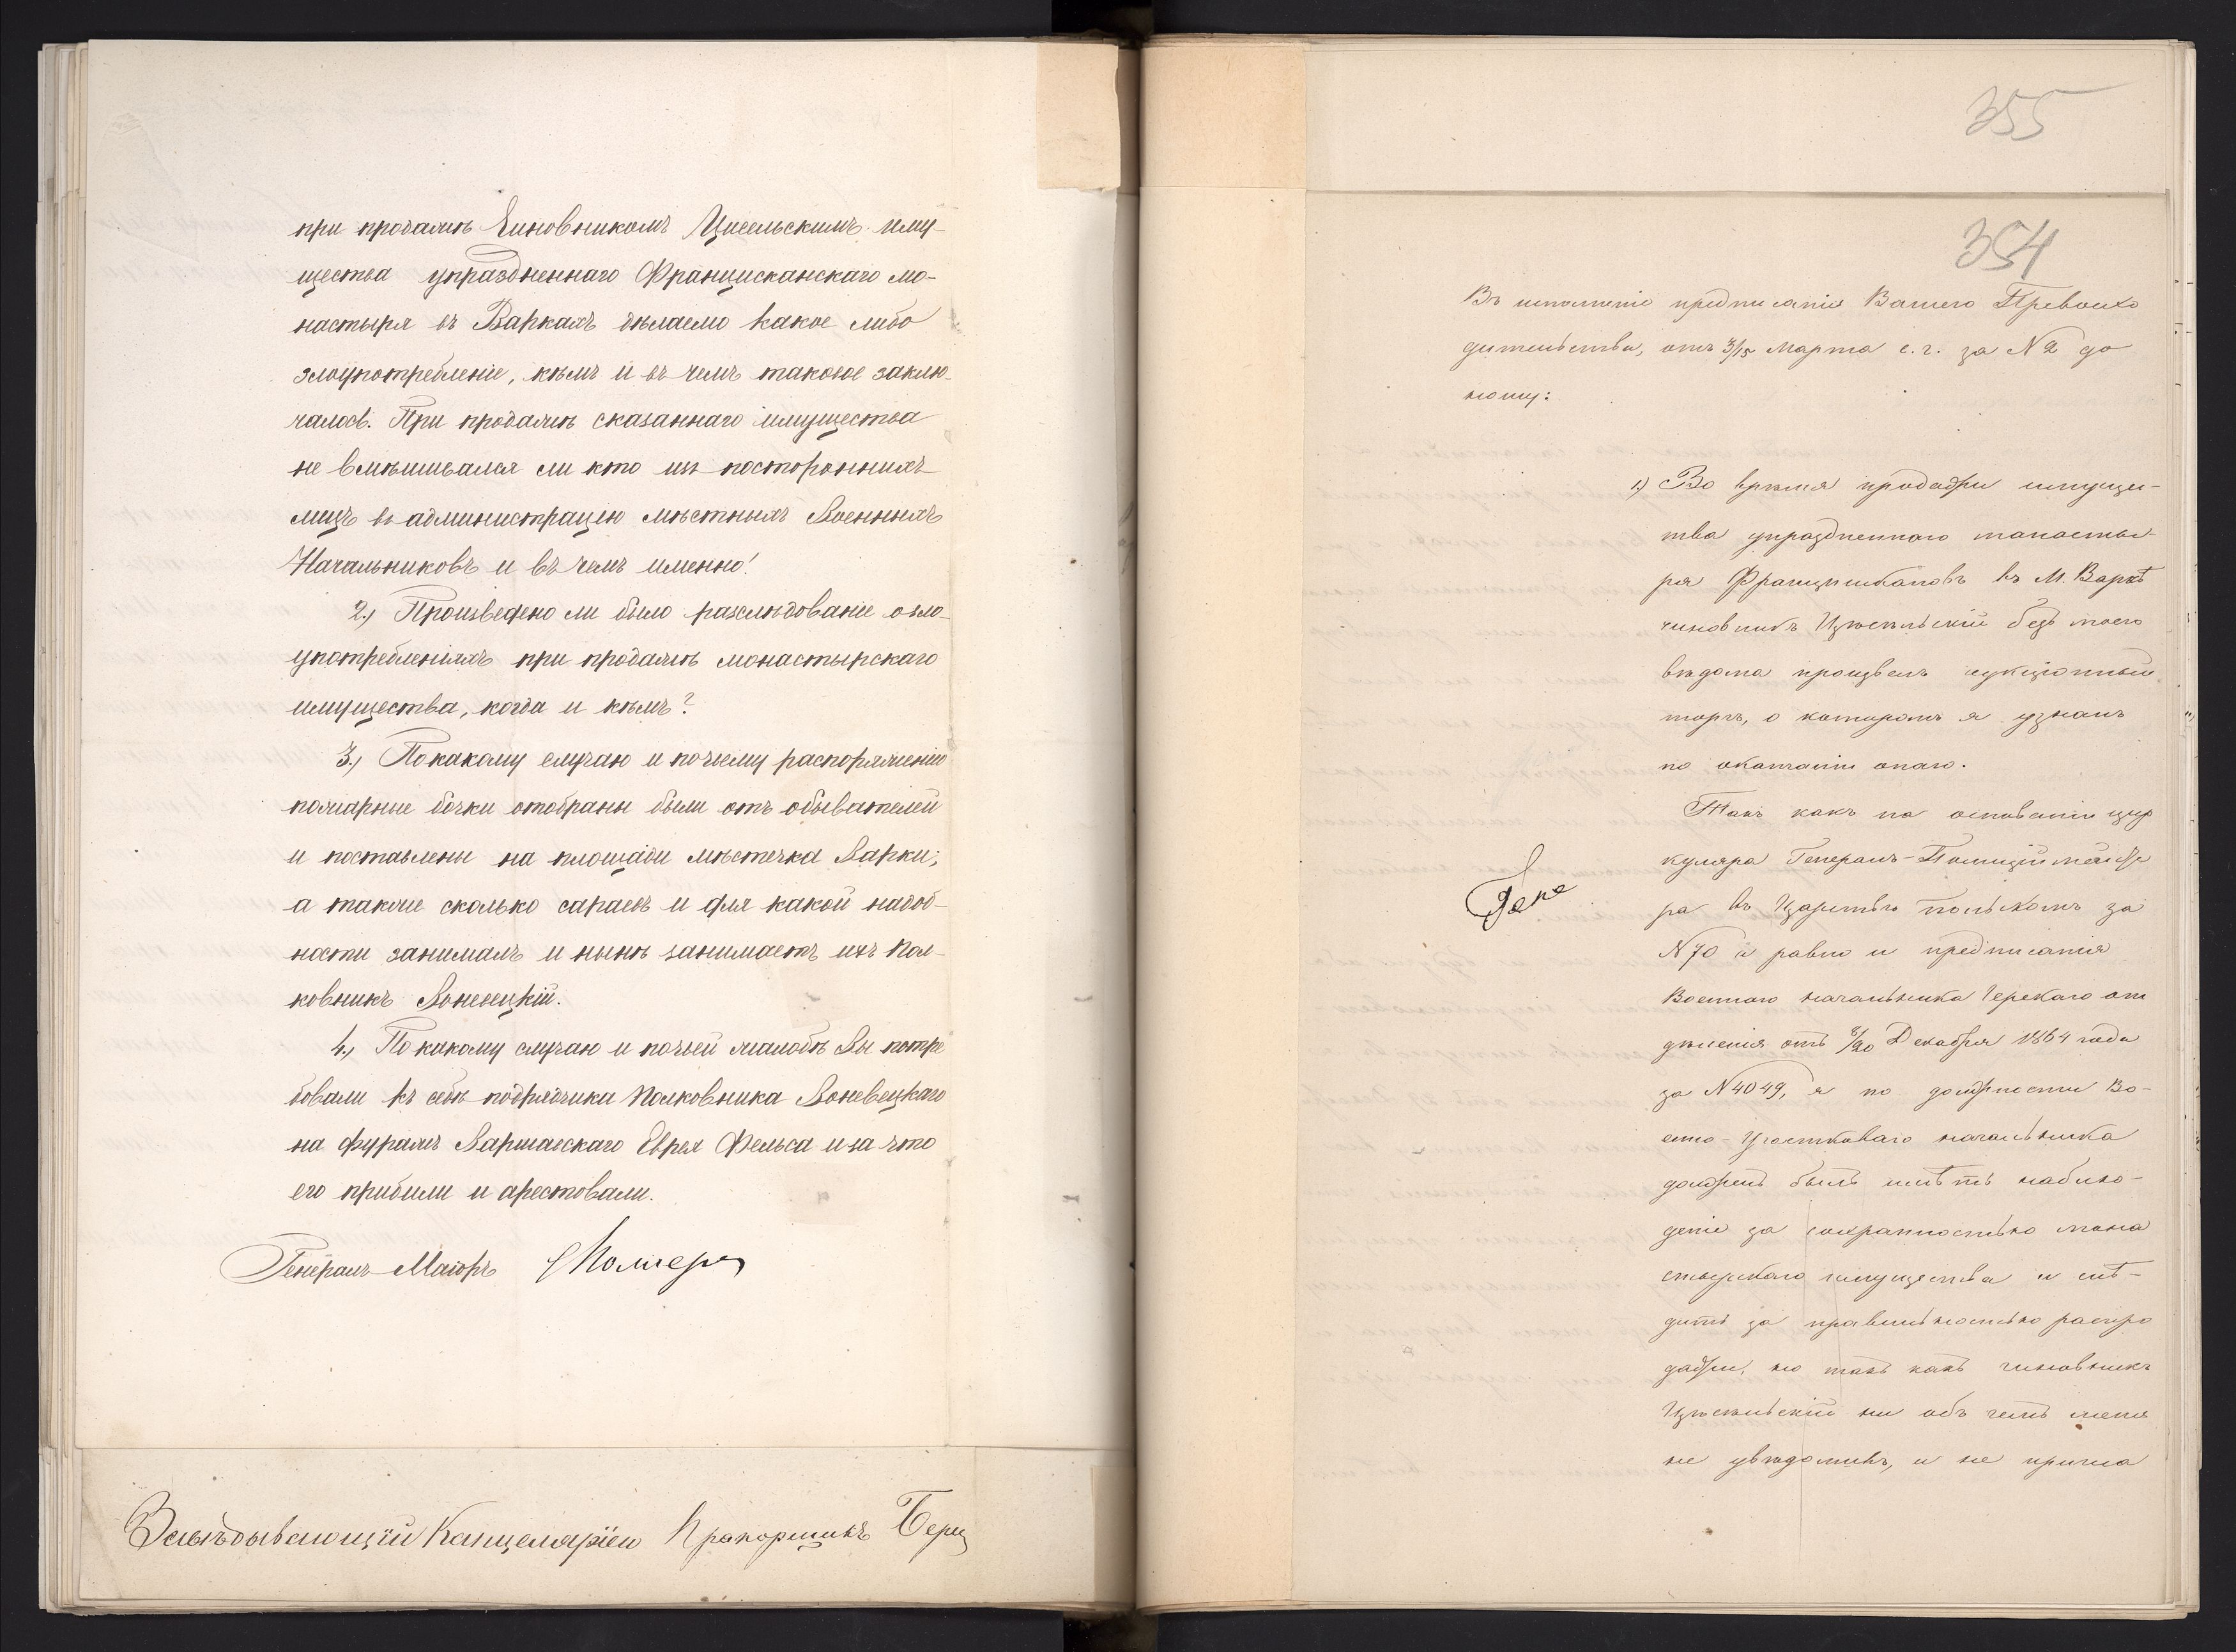 при продажѣ Чиновникомъ Цисельскимъ иму-
щества упраздненнаго Францисканскаго мо-
настыря въ Варкахъ дѣлаемо какое либо
злоупотребленіе, кѣмъ и въ чемъ таковое заклю-
чалось. При продажѣ сказаннаго имущества
не вмѣшивался ли кто изъ постороннихъ
лицъ въ администрацію мѣстныхъ Военныхъ
Начальниковъ и въ чемъ именно!
2.) Произведено ли было разслѣдованіе о зло-
употребленіяхъ при продажѣ монастырскаго
имущества, когда и кѣмъ?
3.) По какому случаю и по чьему распоряженію
пожарные бочки отобраны были отъ обывателей
и поставлены на площади мѣстечка Варки;
а также сколько сараевъ и для какой надоб-
ности занималъ и нынѣ занимаетъ ихъ Пол-
ковникъ Воневецкій.
4.) По какому случаю и по чьей жалобѣ Вы потре
бовали къ себѣ подрядчика Полковника Воневецкаго
на фуражъ Варшавскаго Еврея Фельса и за что
его прибили и арестовали.
Генералъ-Маіоръ
Завѣдывающій Канцеляріею Прапорщикъ Берг
355
354
Въ исполненіе предписанія Вашего Превосхо
дительства, отъ 3/15 Марта с.г. за № 2 до
ношу:
1) Во время продажи имущес-
тва упраздненного монасты-
ря Францишкановъ въ М. Варкѣ
чиновникъ Цѣсельскій безъ моего
вѣдома произвелъ аукціонный
торгъ, о которомъ я узналъ
по окончаніи онаго.
Такъ какъ на основаніи цир
куляра Генералъ-Полицiймейсте
ра въ Царствѣ Польскомъ за
№ 70 а равно и предписанія
Военного начальника Черскаго от
дѣленія отъ 8/20 Декабря 1864 года
за № 4049, я по должности Во-
енно-Участковаго начальника
долженъ былъ имѣть наблю-
деніе за сохранностью мона
стырскаго имущества и слѣ-
дить за правильностью распро
дажи, но такъ какъ чиновникъ
Цѣсельскій ни объ чемъ меня
не увѣдомивъ, и не приниа